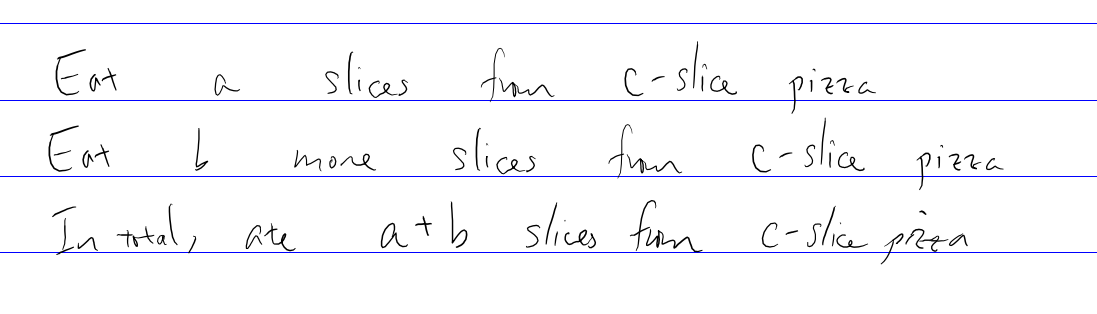 Eat a slices from c-slice pizza
Eat b more slices from c-slice pizza
In total, ate a+b slices from c-slice pizza